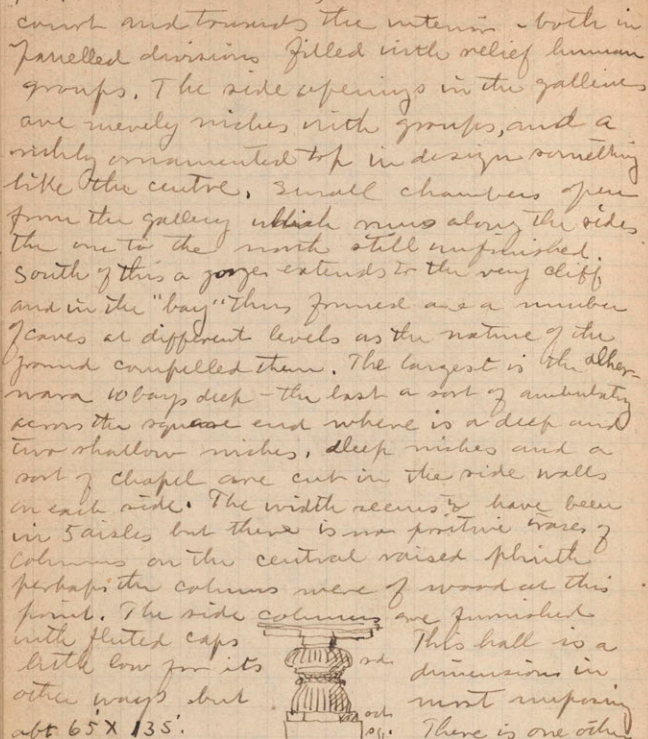 court and towards the interior - both in
panelled divisions filled with relief human
groups. The side openings in the galleries
are merely niches with groups, and a
richly ornamented top in design something
like the centre. Small chambers open
from the gallery which runs along the sides
the one to the north still unfinished.
South of this a gorge extends to the very cliff
and in the "bay" thus formed are a number
of caves at different levels as the nature of the
ground compelled them. The largest is the
10 bays deep - the last a sort of ambulatory
across the square end where is a deep and
two shallow niches. deep niches and a
sort of chapel are cut in the side walls
on each side. The width seems to have been
in 5 aisles but there is no positive traces of
columns on the central raised plinth
perhaps the columns were of wood at this
point. The side columns are furnished
with fluted caps
This hall is a
little low for its
rd.
dimensions in
other ways but
oct.
most imposing
abt 65' X 135'.
sq.
There is one other